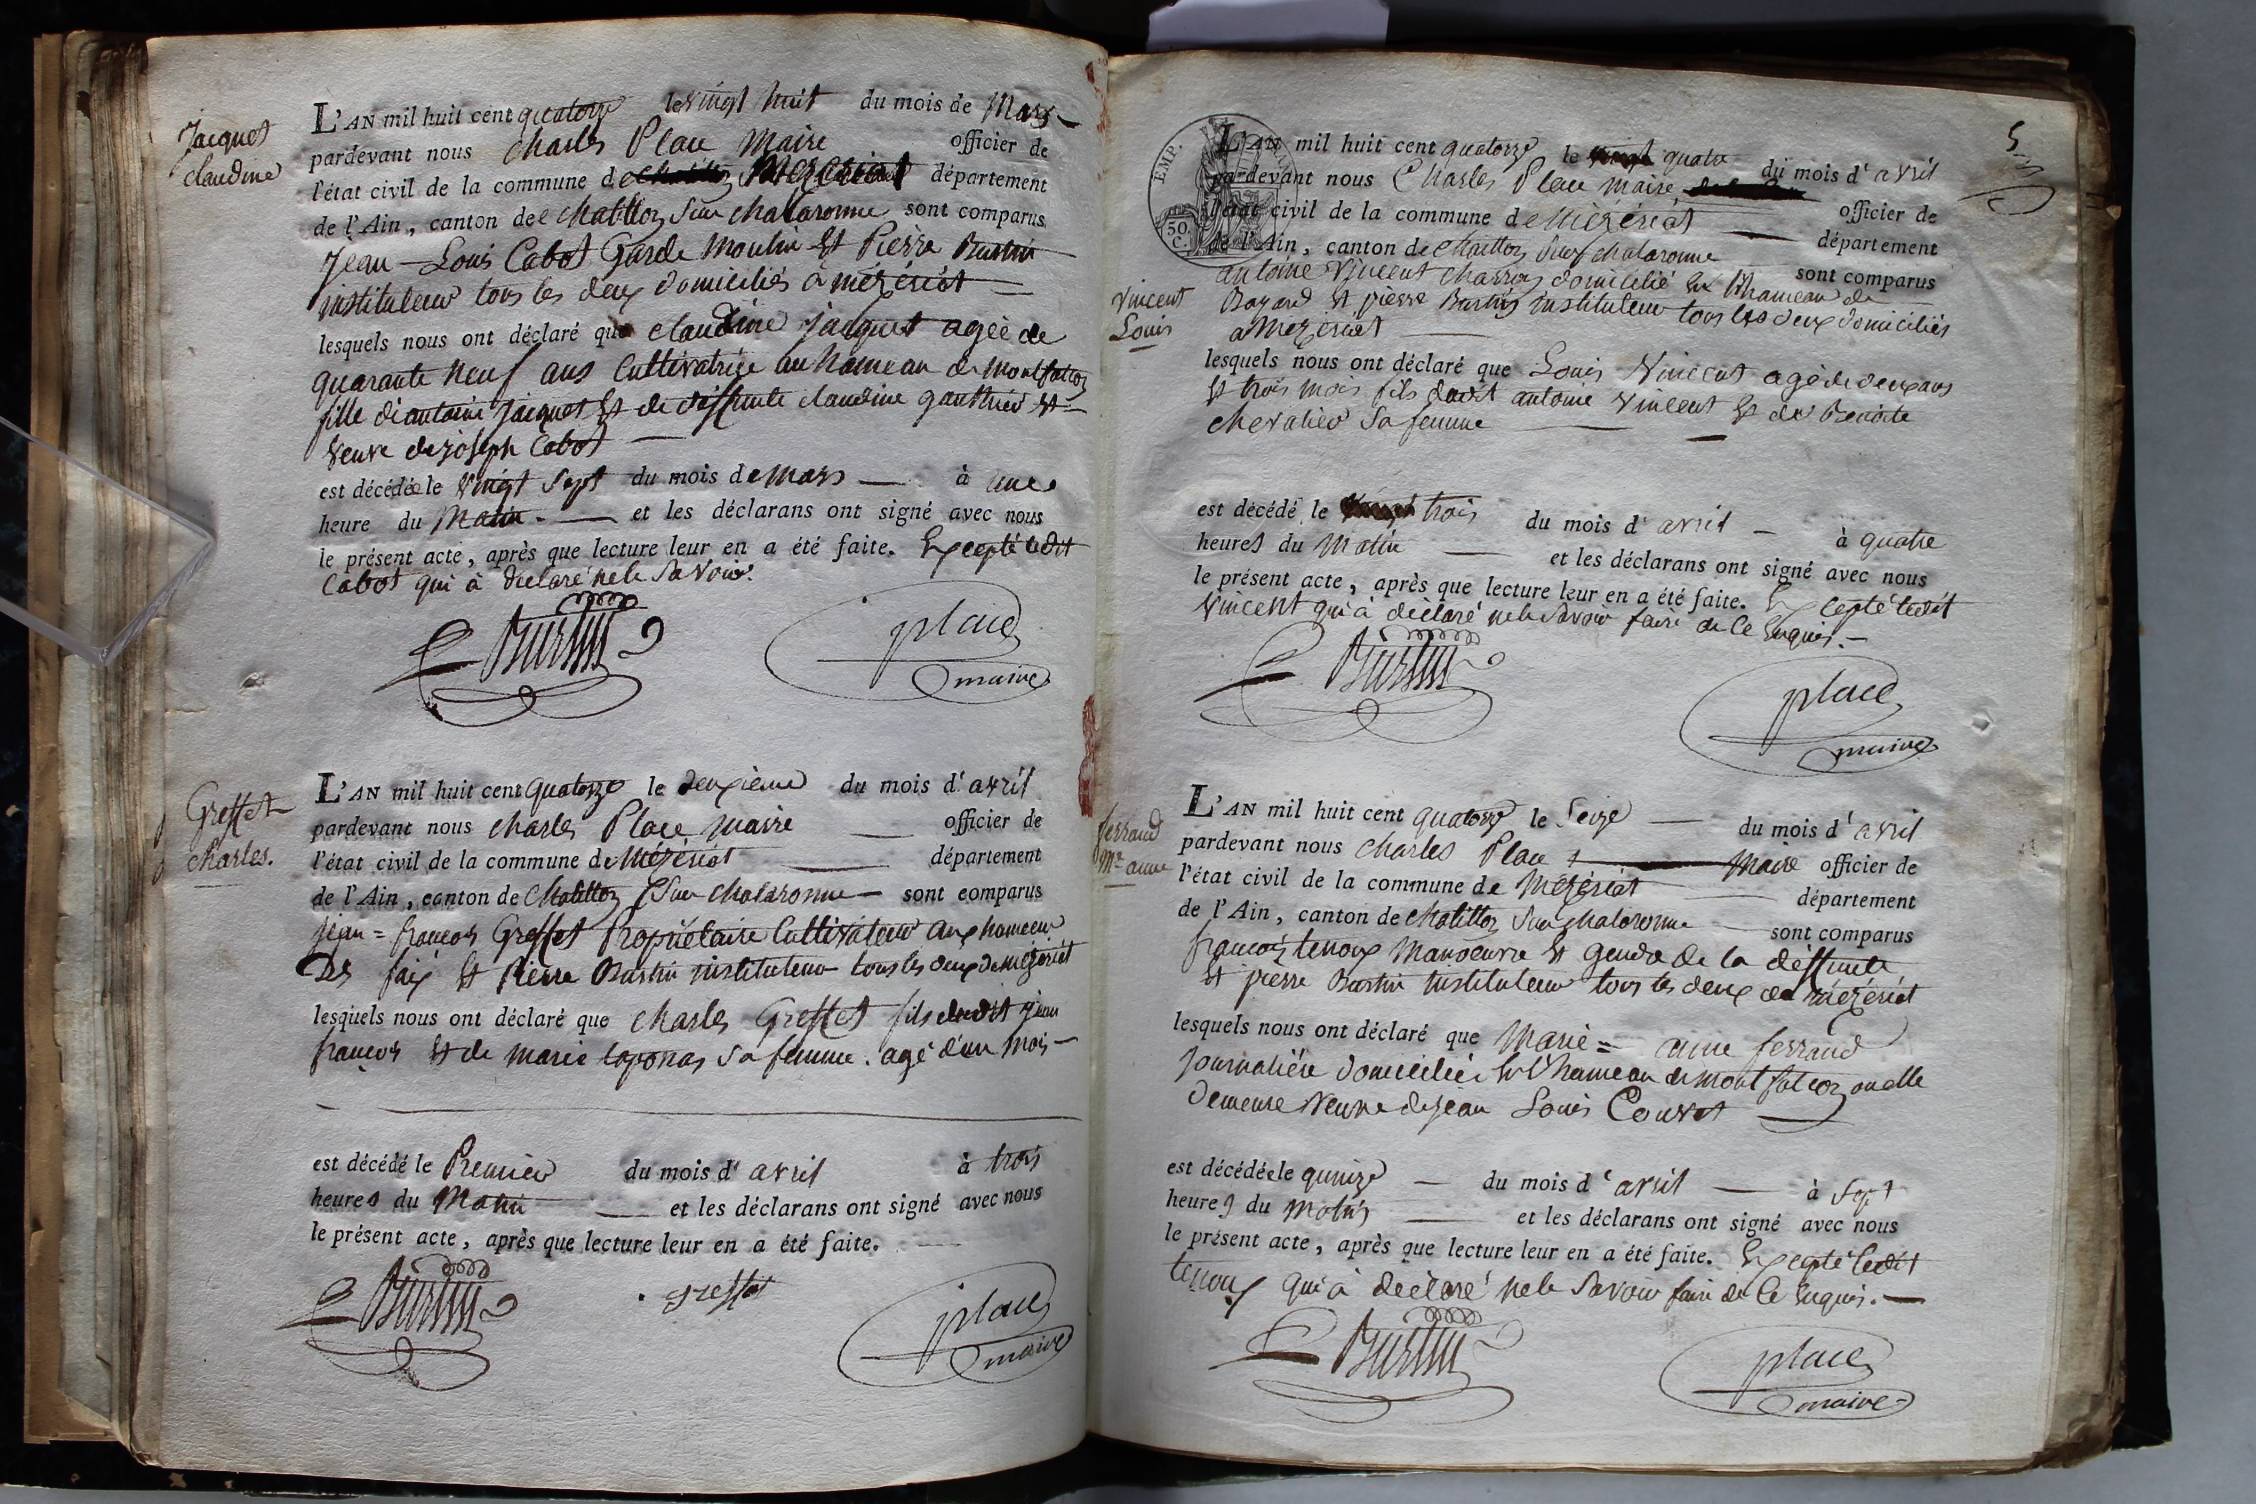 Jacquet
Claudine
L'AN mil huit cent quatorze le vingt huit du mois de Mars
pardevant nous Charles Place Maire officier de
l'état civil de la commune de Mezeriat département
de l'Ain, canton de Chatillon Sur Chalaronne sont comparus
Jean-Louis Cabot Garde Moulin et Pierre Burtin
instituteur tous les deux domiciliés à mézériat
lesquels nous ont déclaré que claudine jacquet agée de
quarante neuf ans Cultivatrice au hameau de montfalcon
fille d'antoine Jacquet et de deffunte claudine gauthier et
veuve de joseph Cabot
est décédée le vingt sept du mois de mars à une
heure du Matin. et les déclarans ont signé avec nous
le présent acte, après que lecture leur en a été faite. Excepté ledit
Cabot qui à déclaré ne le Savoir.
Burtin place
maire
Greffet
Charles.
L'AN mil huit cent quatorze le deuxième du mois d'avril
pardevant nous Charles Place maire officier de
l'état civil de la commune de Mézériat département
de l'Ain, canton de Chatillon Sur Chalaronne sont comparus
jean = françois Greffet Propriétaire Cultivateur au hameau
Des faix et Pierre Burtin instituteur tous les deux de mézériat
lesquels nous ont déclaré que Charles Greffet fils dudit jean
françois et de marie laponas sa femme. agé d'un mois
est décédé le Premier du mois d'avril à trois
heures du Matin et les déclarans ont signé avec nous
le présent acte, après que lecture leur en a été faite.
Burtin greffet place
maire
5
EMP.
50
C.
L'AN mil huit cent quatorze le quatre du mois d'avril
pardevant nous Charles Place maire officier de
l'état civil de la commune de Mézériat département
de l'Ain, canton de Chatillon Sur Chalaronne sont comparus
Vincent
Louis
antoine Vincent Charron domicilié en l'hameau de
Bayard et pierre Burtin instituteur tous les deux domiciliés
a Mezeriat
lesquels nous ont déclaré que Louis Vincent agé de deux ans
et trois mois fils dudit antoine Vincent et de Benoite
chevalier Sa femme
est décédé le trois du mois d'avril à quatre
heures du Matin et les déclarans ont signé avec nous
le présent acte, après que lecture leur en a été faite. Excepté ledit
Vincent qui à déclaré ne le Savoir faire de Ce Enquis.
Burtin place
maire
ferraud
Me anne
L'AN mil huit cent quatorze le Seize du mois d'avril
pardevant nous Charles Place Maire officier de
l'état civil de la commune de Mézériat département
de l'Ain, canton de Chatillon Sur Chalaronne sont comparus
françois tenoux Manoeuvre et gendre de la deffunte
et pierre Burtin instituteur tous les deux de mézériat
lesquels nous ont déclaré que Marie = anne ferraud
Journalière domiciliée En l'hameau de montfalcon ou elle
demeure Veuve de Jean Louis Couvet
est décédée le quinze du mois d'avril à Sept
heures du Matin et les déclarans ont signé avec nous
le présent acte, après que lecture leur en a été faite. Excepté ledit
tenoux qui à déclaré ne le Savoir faire de Ce Enquis.
Burtin place
maire